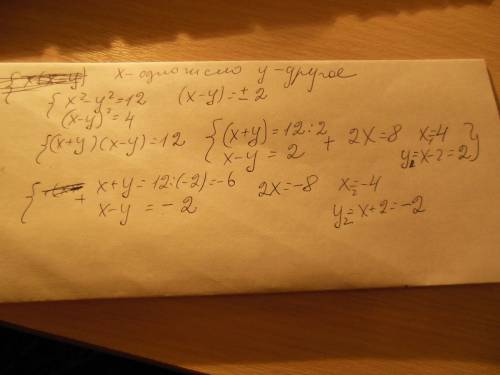 x - одно число y - другое
{ x² - y² = 12 (x-y) = ± 2
(x-y)² = 4
{ (x+y)(x-y) = 12 { (x+y) = 12:2 + 2x=8 x₁=4
x-y = 2 y₁=x-2=2 }
{ + x+y = 12:(-2) = -6 2x=-8 x₂=-4
x-y = -2 y₂=x+2=-2